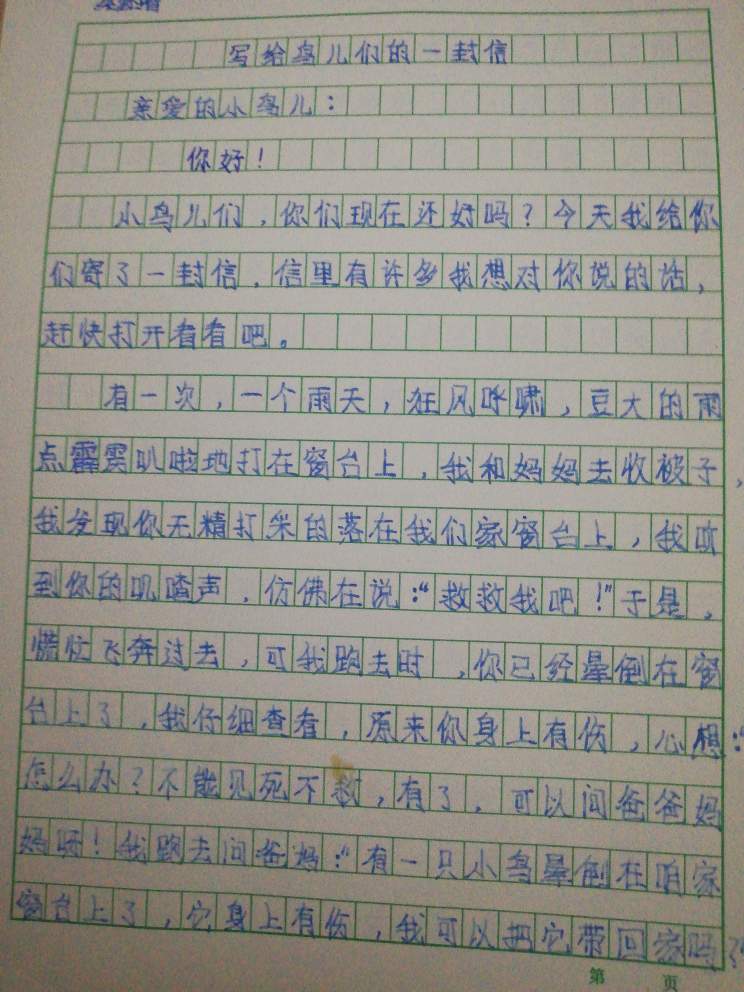 写给鸟儿们的一封信
亲爱的小鸟儿：
你好！
小鸟儿们，你们现在还好吗？今天我给你
们寄了一封信，信里有许多我想对你说的话，
赶快打开看看吧。
有一次，一个雨天，狂风呼啸，豆大的雨
点霹雳叭啦地打在窗台上，我和妈妈去收被子，
我发现你无精打采的落在我们家窗台上，我听
到你的叽喳声，仿佛在说：“救救我吧！”于是，
慌忙飞奔过去，可我跑去时，你已经晕倒在窗
台上了，我仔细查看，原来你身上有伤，心想：“
怎么办？不能见死不救，有了，可以问爸爸妈
妈呀！我跑去问爸妈：“有一只小鸟晕倒在咱家
窗台上了，它身上有伤，我可以把它带回家吗？”
第 页